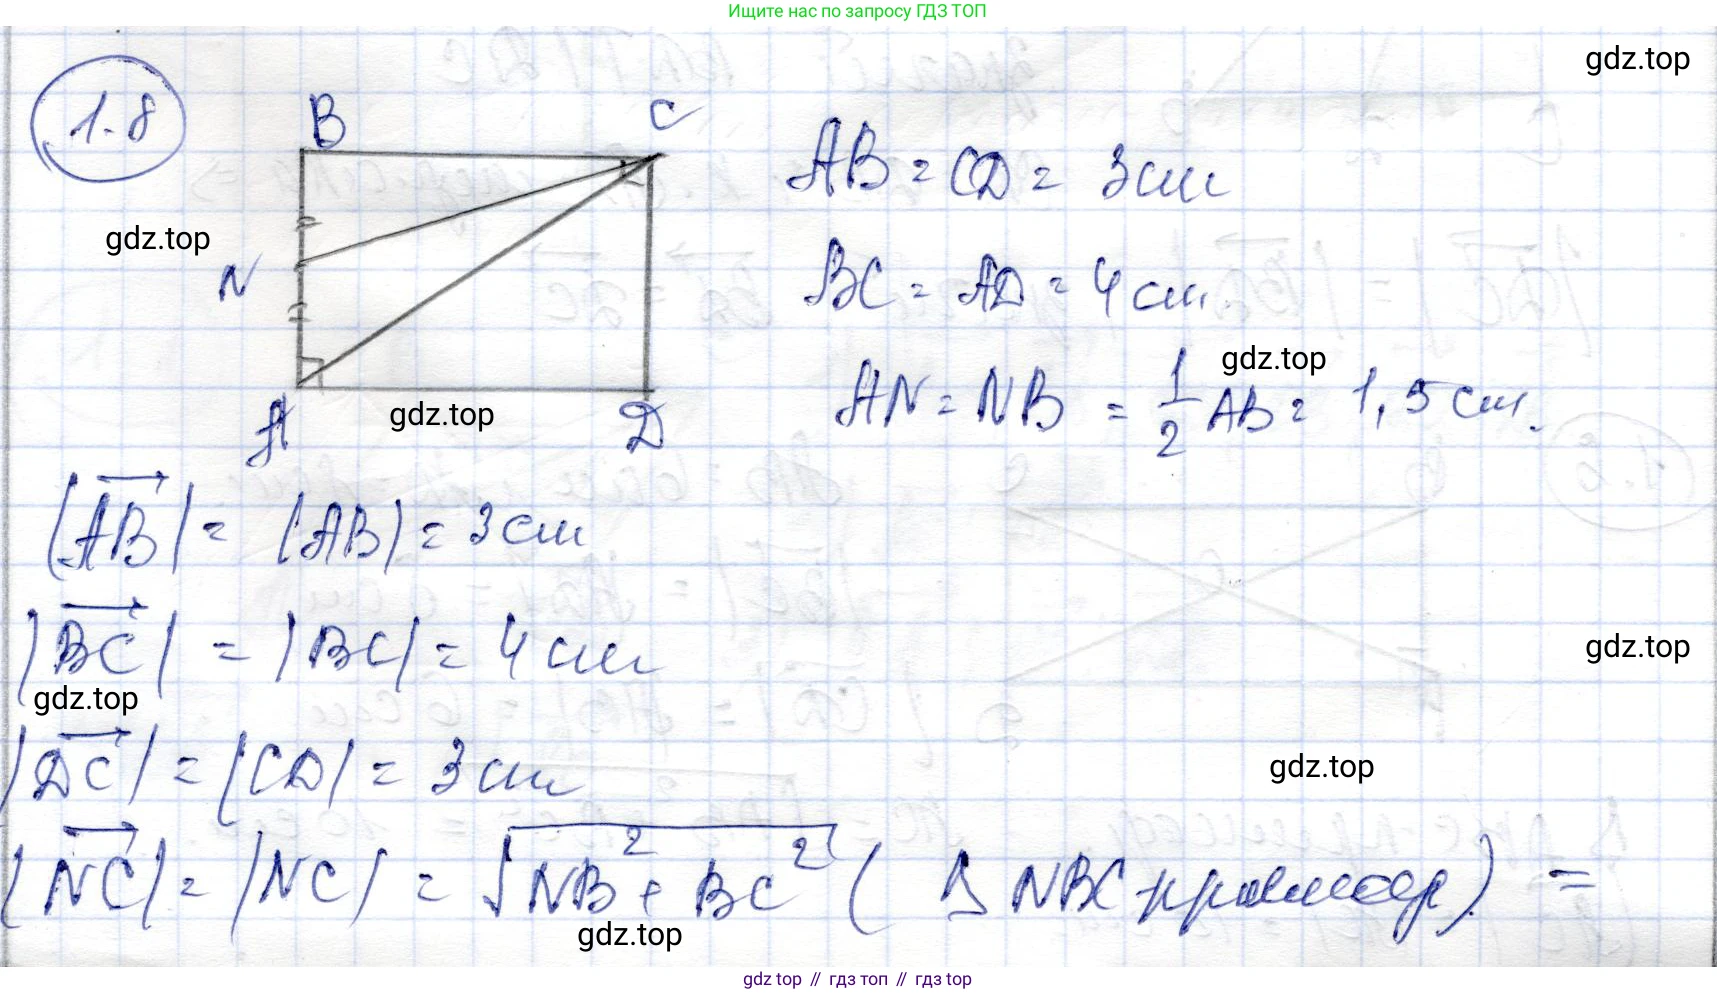 Ищите нас по запросу ГДЗ ТОП
gdz.top
1.8
B
C
AB = CD = 3 см
gdz.top
N
BC = AD = 4 см.
gdz.top
AN = NB = 1/2 AB = 1,5 см.
A
gdz.top
D
|AB| = |AB| = 3 см
|BC| = |BC| = 4 см
gdz.top
gdz.top
|DC| = |CD| = 3 см
gdz.top
|NC| = |NC| = √NB² + BC² (Δ NBC прямоуг) =
gdz.top
gdz top // гдз топ // гдз top